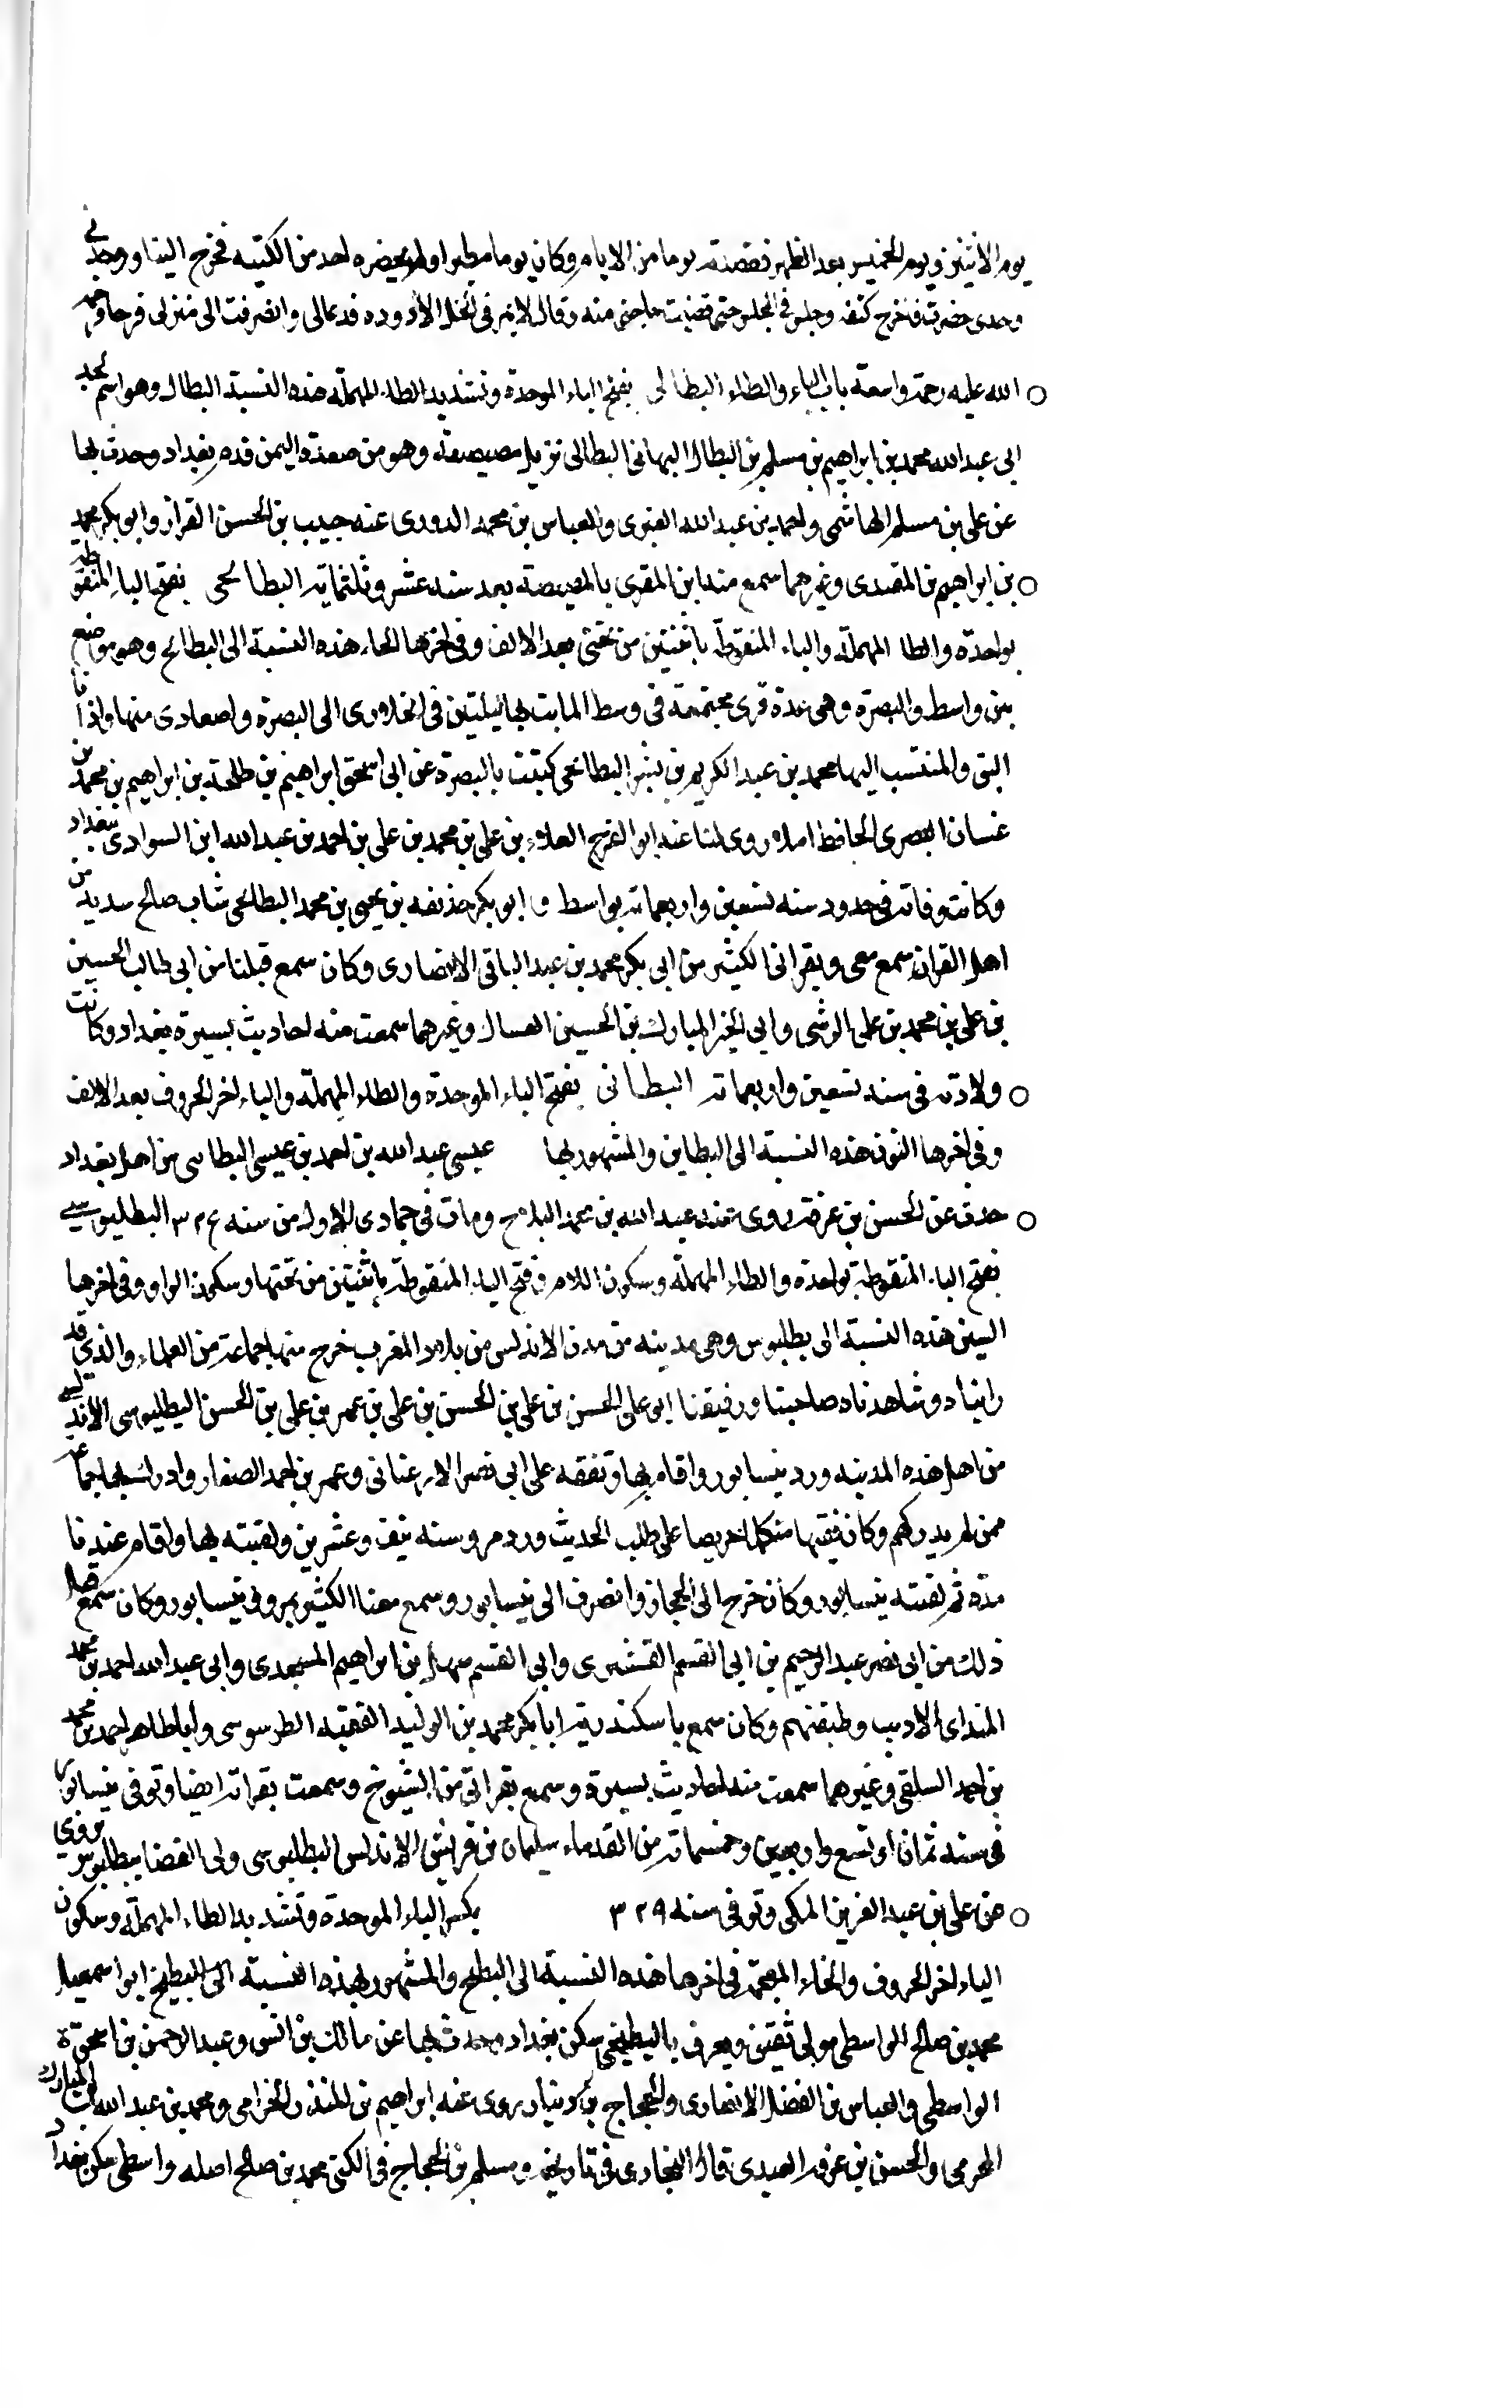 يوم الاثنين ويوم الخميس بعد الظهر فقصدته يوما من الايام وكان يوما مطيرا ولم يحضره احد من الكتبه فخرج الينا ووجدني
وحدي حضرت فاخرج كتفه وجلس في المجلس حتى قضيت حاجتى منه وقال لا يزفى دخل الا دوده فدعا لى وانصرفت الى منزلى فرحا رحمه
الله عليه رحمة واسعة باب الباء والطاء البطالى بفتح الباء الموحدة وتشديد الطاء المهملة هذه النسبة البطال وهو اسم لجد
ابى عبد الله محمد بن ابراهيم بن مسلم بن البطال اليمانى البطالى نزيل مصيصة وهو من صعدة اليمن قدم بغداد وحدث بها
عن على بن مسلم الهاشمى واحمد بن عبد الله العنبرى والعباس بن محمد الدورى عنه حبيب بن الحسن القزاز وابو بكر محمد
بن ابراهيم بن المقرى وغيرهما سمع منه ابن المقرى بالمصيصة بعد سنه عشر وثلثمايه البطائحى بفتح الباء المنقوطه
بواحدة والطا المهملة والياء المنقوطة باثنتين من تحتى بعد الالف وفى اخرها الحاء هذه النسبة الى البطائح وهو موضع
بين واسط والبصرة وهى عدة قرى مجتمعة فى وسط الما بت بها ليلتين فى انحدارى الى البصرة واصعادى منها واذا
البق والمنتسب اليها محمد بن عبد الكريم بن بشر البطائحى كتبت بالبصرة عن ابى اسحق ابراهيم بن طلحة بن ابراهيم بن محمد بن
غسان البصرى الحافظ املا روى لنا عنه ابو الفرج العلاء بن على بن محمد بن على بن احمد بن عبد الله ابن السوادى ببغداد
وكانت وفاته فى حدود سنه تسعين واربعمايه بواسط وابو بكر حذيفه بن يحيى بن محمد البطائحى شاب صالح سديد من
اهل القران سمع معى وبقرانى الكثير من ابى بكر محمد بن عبد الباقى الانصارى وكان سمع قبلنا من ابى طالب الحسين
بن على بن محمد بن على الوشى وابى الخير المبارك بن الحسين الغسال وغيرهما سمعت منه احاديث يسيرة ببغداد وكانت
ولادته فى سنه تسعين واربعمايه البطاينى بفتح الباء الموحدة والطاء المهملة والياء اخر الحروف بعد الالف
وفى اخرها النون هذه النسبة الى البطاين والمشهور بها عيسى عبد الله بن احمد بن عيسى البطاينى من اهل بغداد
حدث عن الحسن بن عرفة روى عنه عبد الله بن محمد ومات فى جمادى الاوله من سنه ٣٢٤ البطليوسى
بفتح الباء المنقوطة بواحدة والطاء المهملة وسكون اللام وفتح الياء المنقوطة باثنتين من تحتها وسكون الواو وفى اخرها
السين هذه النسبة الى بطليوس وهى مدينه من مدن الاندلس من بلاد المغرب خرج منها جماعة من العلماء والذى قد
راينا دوشاهدناه صاحبنا ورفيقنا ابو على الحسن بن على بن الحسن بن على بن عمر بن على بن الحسن البطليوسى الاندلسى
من اهل هذه المدينه ورد نيسابور واقام بها وتفقه على ابى نصر الارغنانى وعمر بن احمد الصفار وادرك بها جماعه
ممن لم يدركهم وكان فقيها متكلما حريصا على طلب الحديث ورد مرو سنه نيف وعشرين ولقيته بها واقام عندنا
مدة ثم لقيته بنيسابور وكان خرج الى الحجاز وانصرف الى نيسابور وسمع معنا الكثير بمرو فى نيسابور وكان سمع قبل
ذلك من ابى نصر عبد الرحيم بن ابى القسم القشيرى وابى القسم سهل بن ابراهيم المسجدى وابى عبد الله احمد بن محمد
الميداى الاديب وطبقتهم وكان سمع باسكندرية ابا بكر محمد بن الوليد الفقيه الطرسوسى وابا طاهر احمد بن محمد
بن احمد السلفى وغيرهما سمعت منه احاديث يسيرة وسمع بقراتى من الشيوخ وسمعت بقراته ايضا وتوفى بنيسابور
فى سنه ثمان او تسع واربعين وخمسمايه من القدماء سليمان بن قريش الاندلسى البطليوسى ولى القضا ببطليوس يروى
عن على بن عبد العزيز المكى وتوفى سنه ٣٢٩ بكسر الباء الموحدة وتشديد الطاء المهملة وسكون
الياء اخر الحروف والخاء المعجمة فى اخرها هذه النسبة الى البطيخ والمشهور بهذه النسبة الى البطيخ ابو اسمعيل
محمد بن صالح الواسطى مولى ثقيف ويعرف بالبطيخى سكن بغداد وحدث بها عن مالك بن انس وعبد الرحمن بن اسحق
الواسطى والعباس بن الفضل الانصارى والحجاج بن دينار روى عنه ابراهيم بن المنذر الحزامى ومحمد بن عبد الله المبارك
المخرمى والحسن بن عرفه العبدى قال البخارى فى تاريخه ومسلم بن الحجاج فى الكنى محمد بن صالح اصله واسطى سكن بغداد